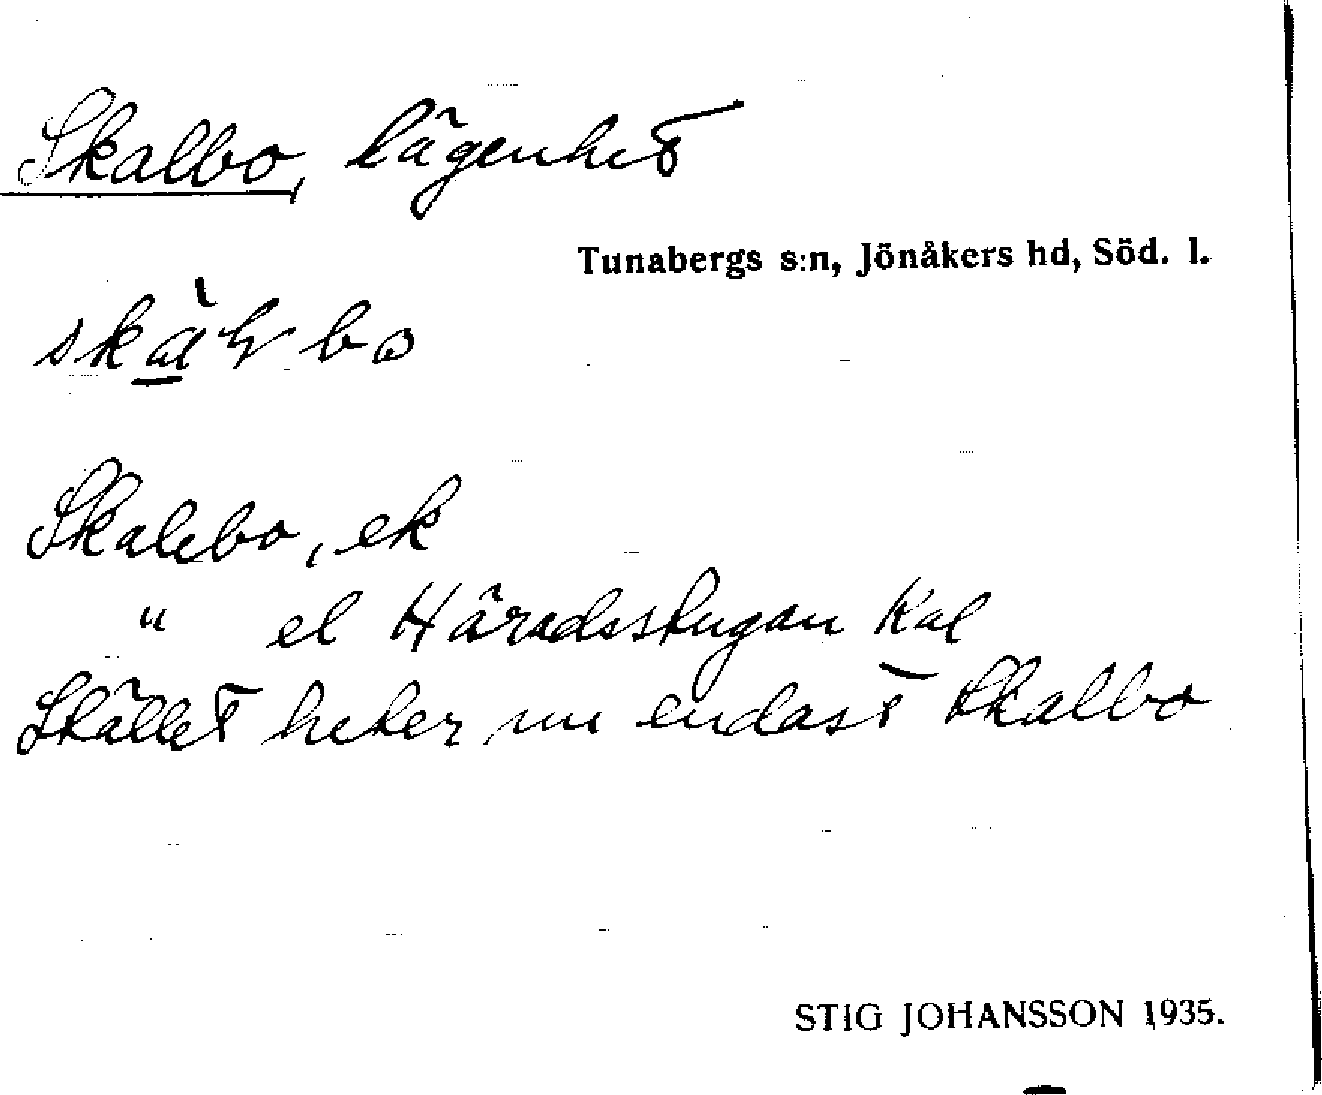 Skalbo, lägenhet
Tunabergs s:n, Jönåkers hd, Söd. l.
Skalebo, ek
" el Häradsstugan Kal
Stället heter nu endast Skalbo
STIG JOHANSSON 1935.